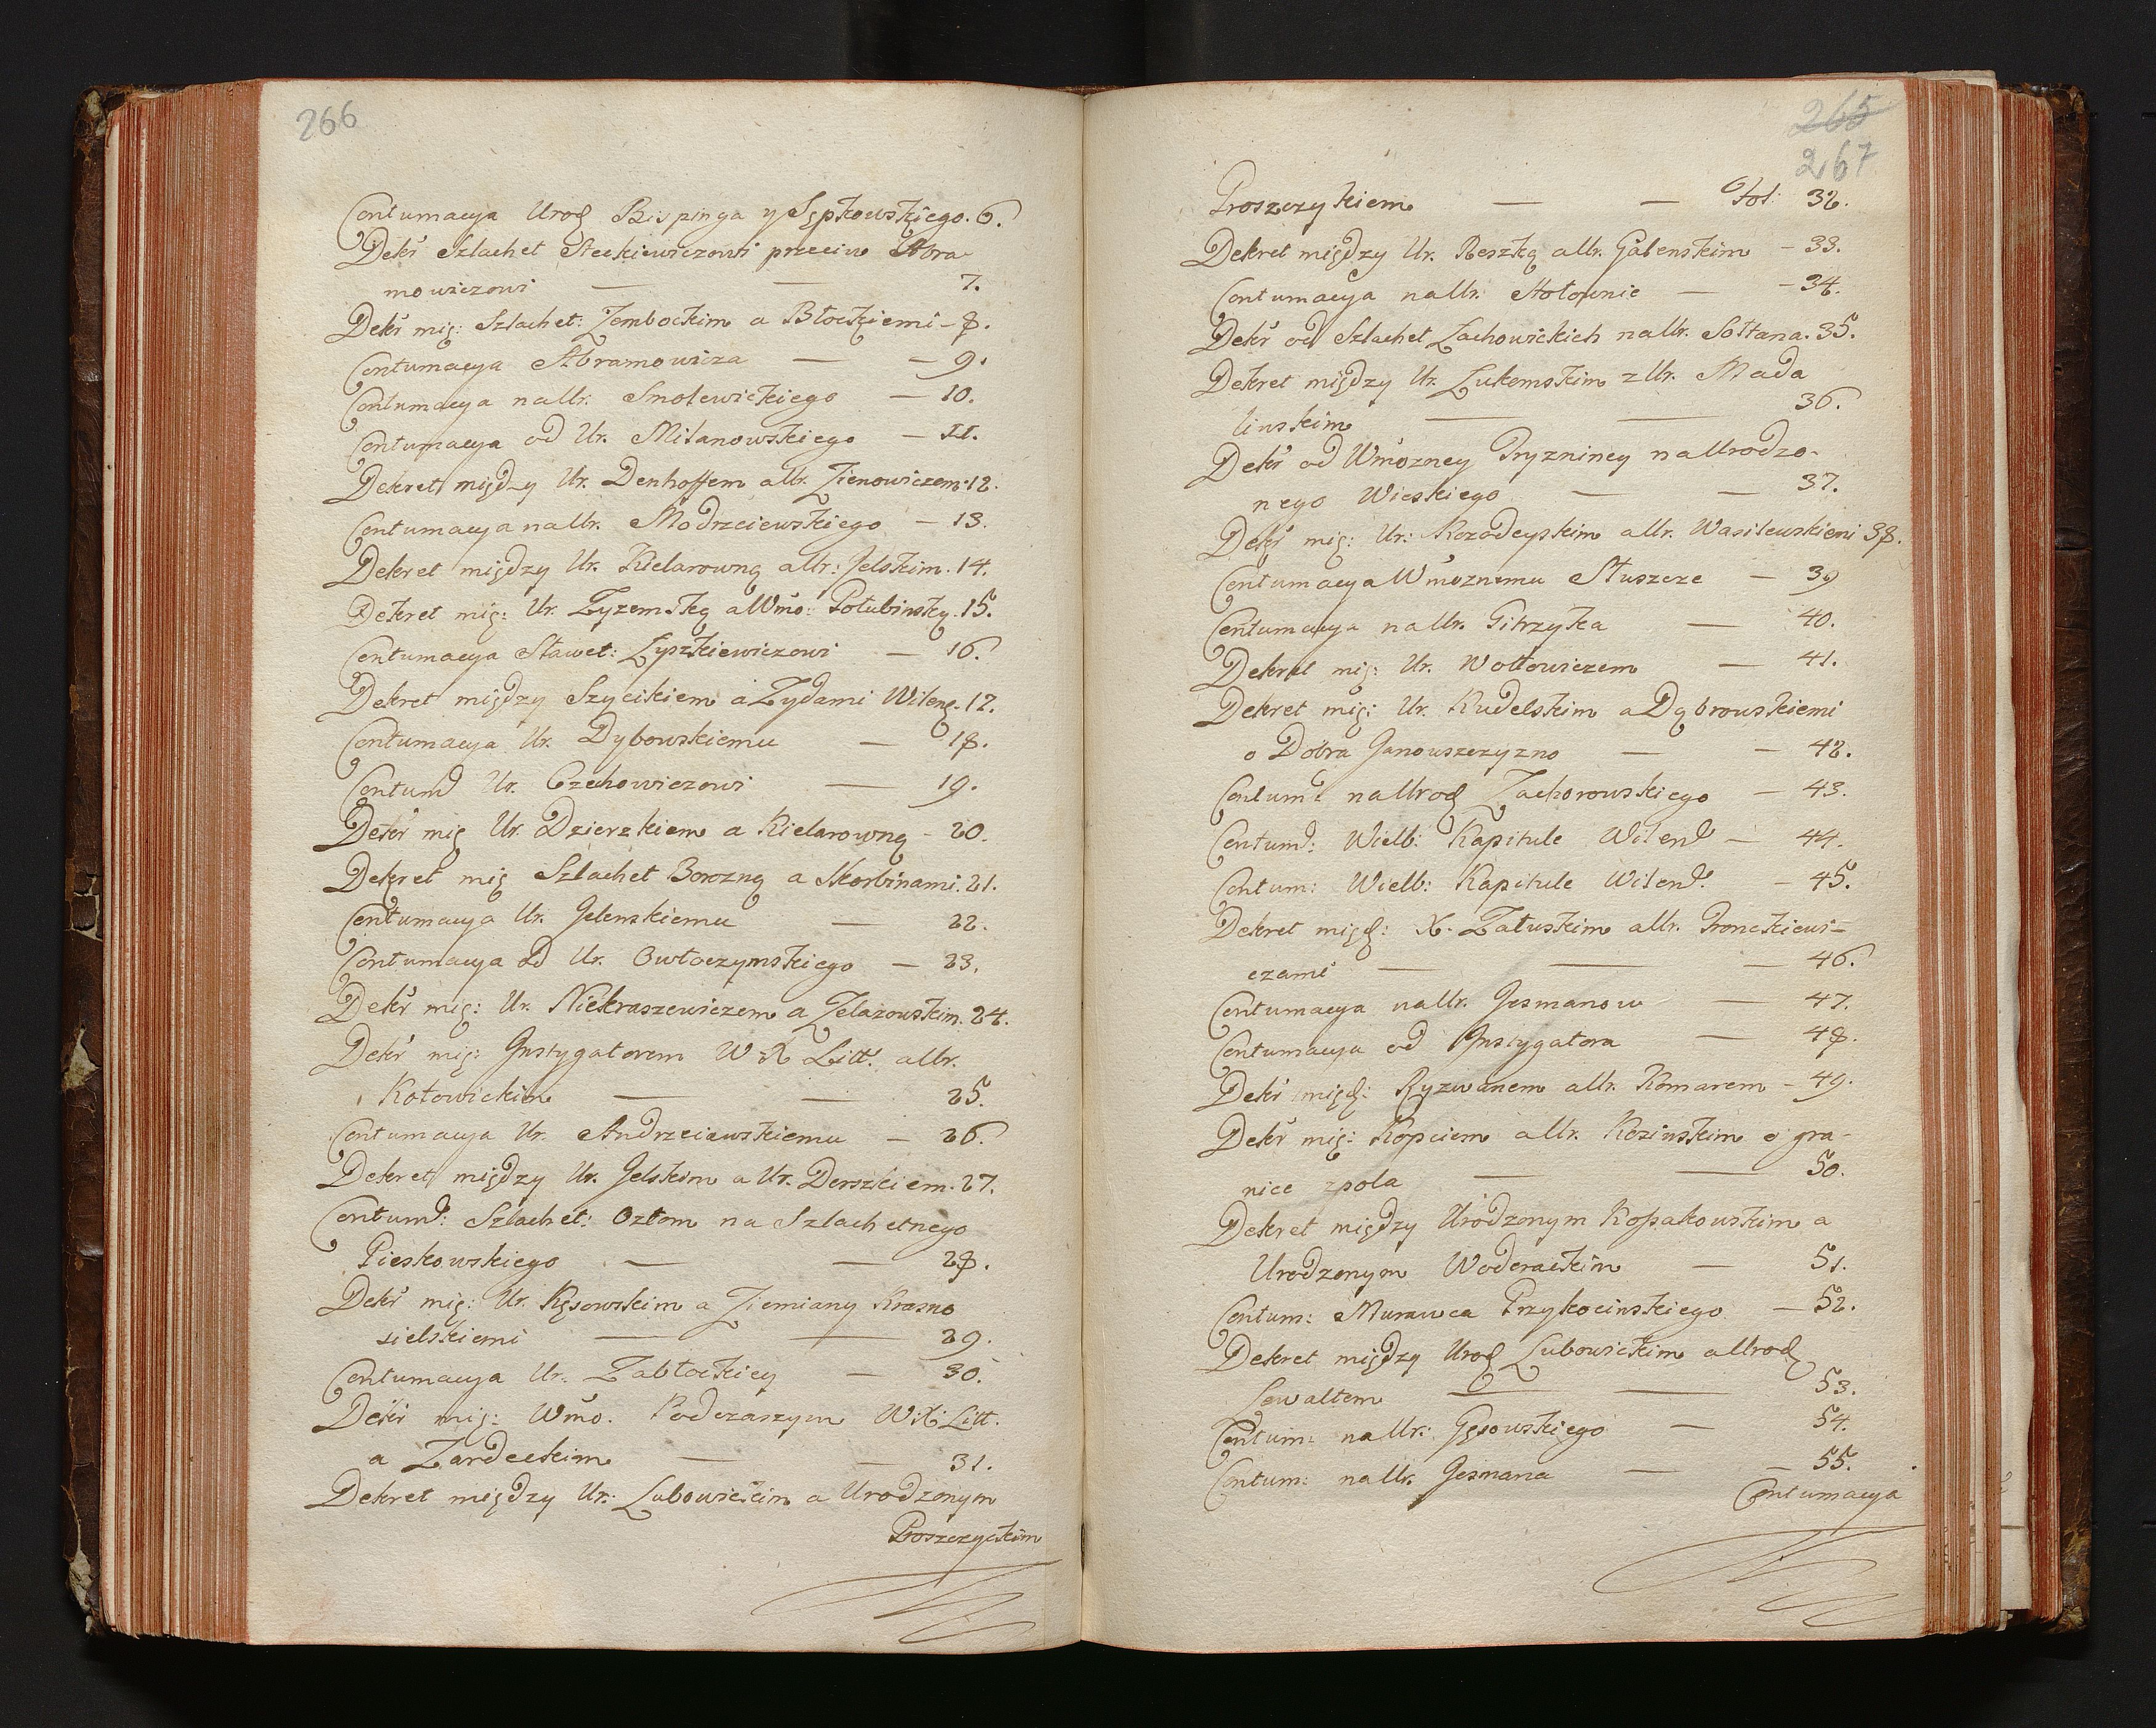 266
Contumacya Urodz Bispinga y Sępkowskiego. 6.
Dekr Szlachet Steckiewiczowi przeciw Abra-
mowiczowi — — 7.
Dekr mię: Szlachet: Zembockim a Błockiemi - 8.
Contumacya Abramowicza — — 9.
Contumacya na Ur. Smolewickiego — 10.
Contumacya od Ur. Milanowskiego — 11.
Dekret między Ur. Denhoffem a Ur. Zienowiczem. 12.
Contumacya na Ur. Modrzeiewskiego — 13.
Dekret między Ur. Kielarowną a Ur: Jelskim. 14.
Dekret mię: Ur. Zyzemską a Wmo: Połubinską. 15.
Contumacya Sławet: Łyszkiewiczowi — 16.
Dekret między Szycikiem a Zydami Wileń. 17.
Contumacya Ur. Dybowskiemu — 18.
Contum Ur. Czechowiczowi — 19.
Dekr mię Ur. Dzierzkiem a Kielarowną - 20.
Dekret mię Szlachet Borozną a Skorbinami. 21.
Contumacya Ur. Jelenskiemu — 22.
Contumacya od Ur. Owłoczymskiego — 23.
Dekr mię: Ur. Niekraszewiczem a Zelazowskim. 24.
Dekr mię: Instygatorem W X Litt. a Ur.
Kotowickim — — 25.
Contumacya Ur. Andrzeiewskiemu — 26.
Dekret między Ur. Jelskim a Ur. Derszkiem. 27.
Contum: Szlachet: Ozłom na Szlachetnego
Pieskowskiego — — 28.
Dekr mię: Ur. Kęsowskim a Ziemiany Krasno
sielskiemi — — 29.
Contumacya Ur. Zabłockiey — 30.
Dekr mię: Wmo. Podczaszym W: X: Litt.
a Zardeckim — — 31.
Dekret między Ur: Lubowickim a Urodzonym
Proszczyckim
265
267
Proszczykiem — — fol: 32.
Dekret między Ur. Reszką a Ur. Gałenskim — 33.
Contumacya na Ur. Hołownie — — 34.
Dekr od Szlachet Lachowickich na Ur. Sołtana. 35.
Dekret między Ur. Łukomskim z Ur. Mada
linskim — — 36.
Dekr od Wmozney Pryzniney na Urodzo-
nego Wieskiego — — 37.
Dekr mię: Ur: Kozodeyskim a Ur. Wasilewskiemi 38.
Contumacya Wmoznemu Słuszcze — 39
Contumacya na Ur. Gitrzyka — 40.
Dekret mię: Ur. Wołłowiczem — 41.
Dekret mię: Ur. Kudelskim a Dąbrowskiemi
o Dobra Janowszczyzno — — 42.
Contum: na Urodz Zachorowskiego — 43.
Contum: Wielb: Kapitule Wilen — 44.
Contum: Wielb: Kapitule Wilen. — 45.
Dekret międ: X. Załuskim a Ur. Pronckiewi-
czami — — — 46.
Contumacya na Ur. Jesmanow — 47.
Contumacya od Instygatora — 48.
Dekr międ: Ryzwanem a Ur. Komarem — 49.
Dekr mię: Kopciem a Ur. Kozinskim o gra-
nice zpola — — 50.
Dekret między Urodzonym Kossakowskim a
Urodzonym Woderackim — 51.
Contum: Murawca Przykocinskiego — 52.
Dekret między Urodz Lubowickim a Urodz
Lewaltem — — 53.
Contum: na Ur: Gęsowskiego — 54.
Contum: na Ur. Jesmana — — 55.
Contumacya